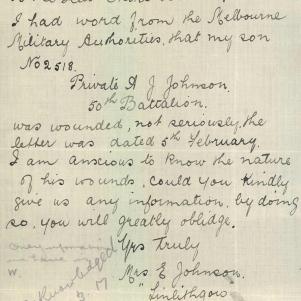 I had word from the Melbourne
Military Authorities, that my son
No 2518.
Private A J Johnson.
50th Battalion.
was wounded, not seriously, the
letter was dated 5th February.
I am anscious to know the nature
of his wounds, Could you Kindly
give us any information, by doing
so, you will greatly oblidge.
Yrs Truly
Mrs E Johnson.
"Linlithgow
W.